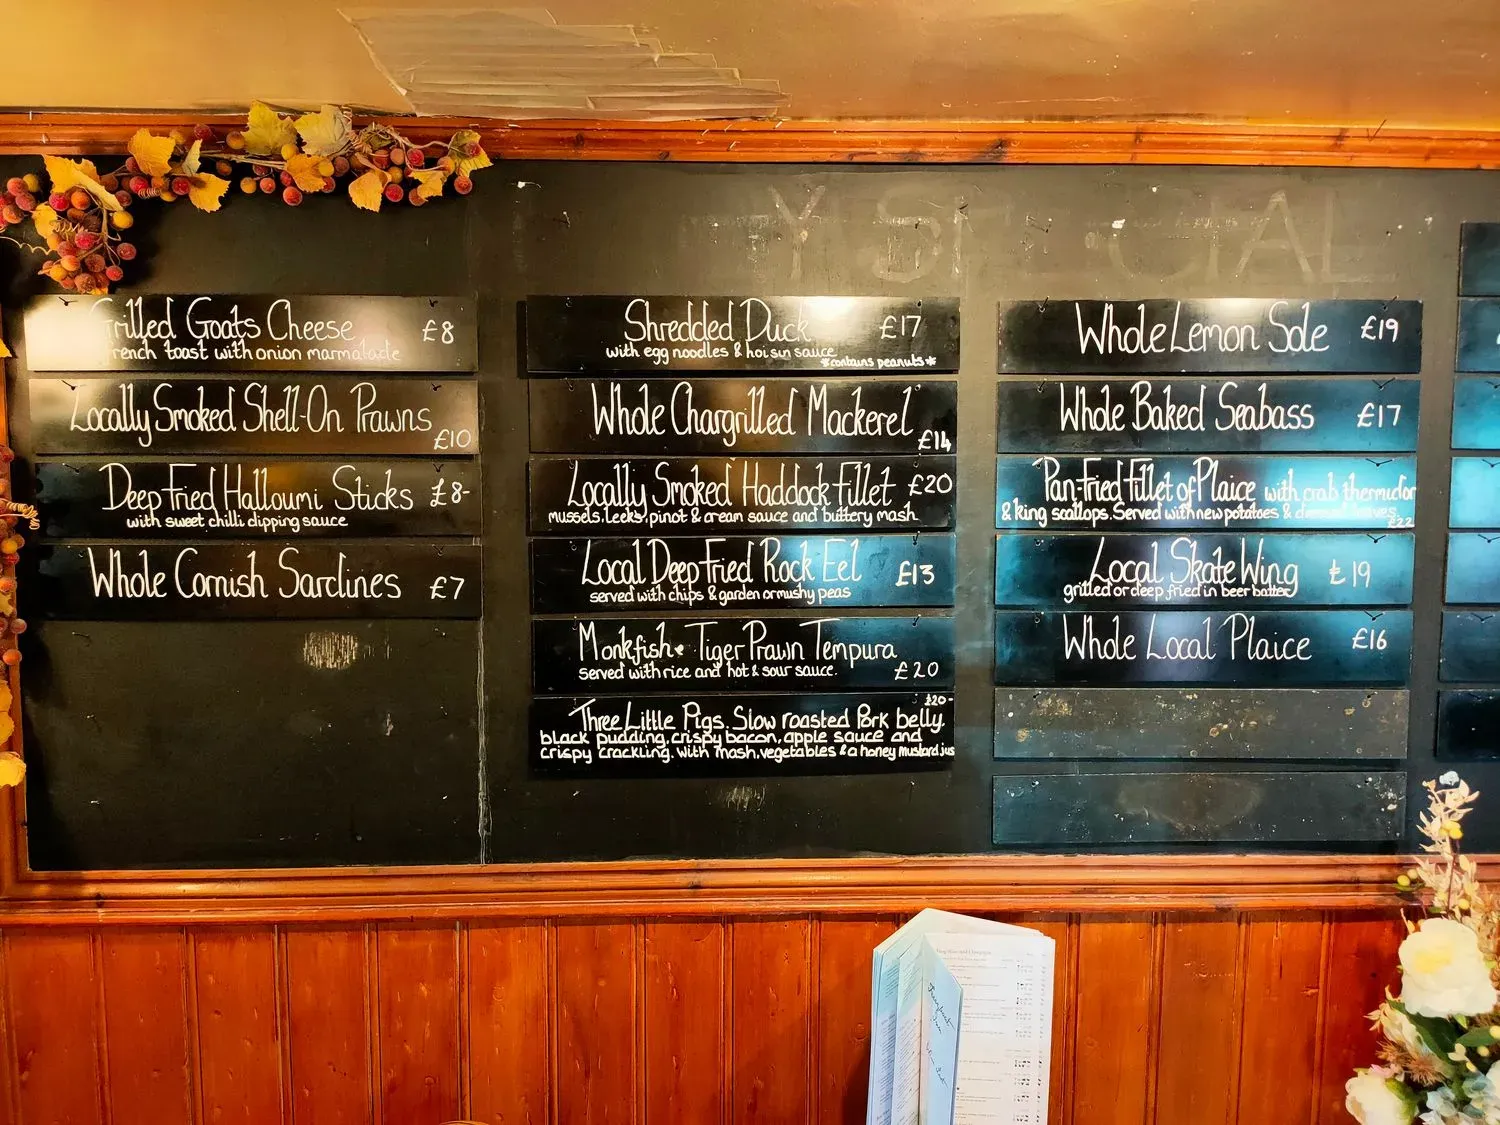 Grilled Goats Cheese £8
french toast with onion marmalade
Locally Smoked Shell-On Prawns
£10
Deep Fried Halloumi Sticks £8-
with sweet chilli dipping sauce
Whole Cornish Sardines £7
Shredded Duck £17
with egg noodles & hoi sun sauce
*contains peanuts*
Whole Chargrilled Mackerel
£14
Locally Smoked Haddock Fillet £20
mussels, leeks, pinot & cream sauce and buttery mash
Local Deep Fried Rock Eel £13
served with chips & garden or mushy peas
Monkfish & Tiger Prawn Tempura
served with rice and hot & sour sauce. £20
£20-
Three Little Pigs. Slow roasted Pork belly.
black pudding, crispy bacon, apple sauce and
crispy crackling. with mash, vegetables & a honey mustard jus
Y SPECIAL
Whole Lemon Sole £19
Whole Baked Seabass £17
Pan-Fried Fillet of Plaice with crab thermidor
& king scallops. Served with new potatoes & dressed leaves
£22
Local Skate Wing £19
grilled or deep fried in beer batter
Whole Local Plaice £16